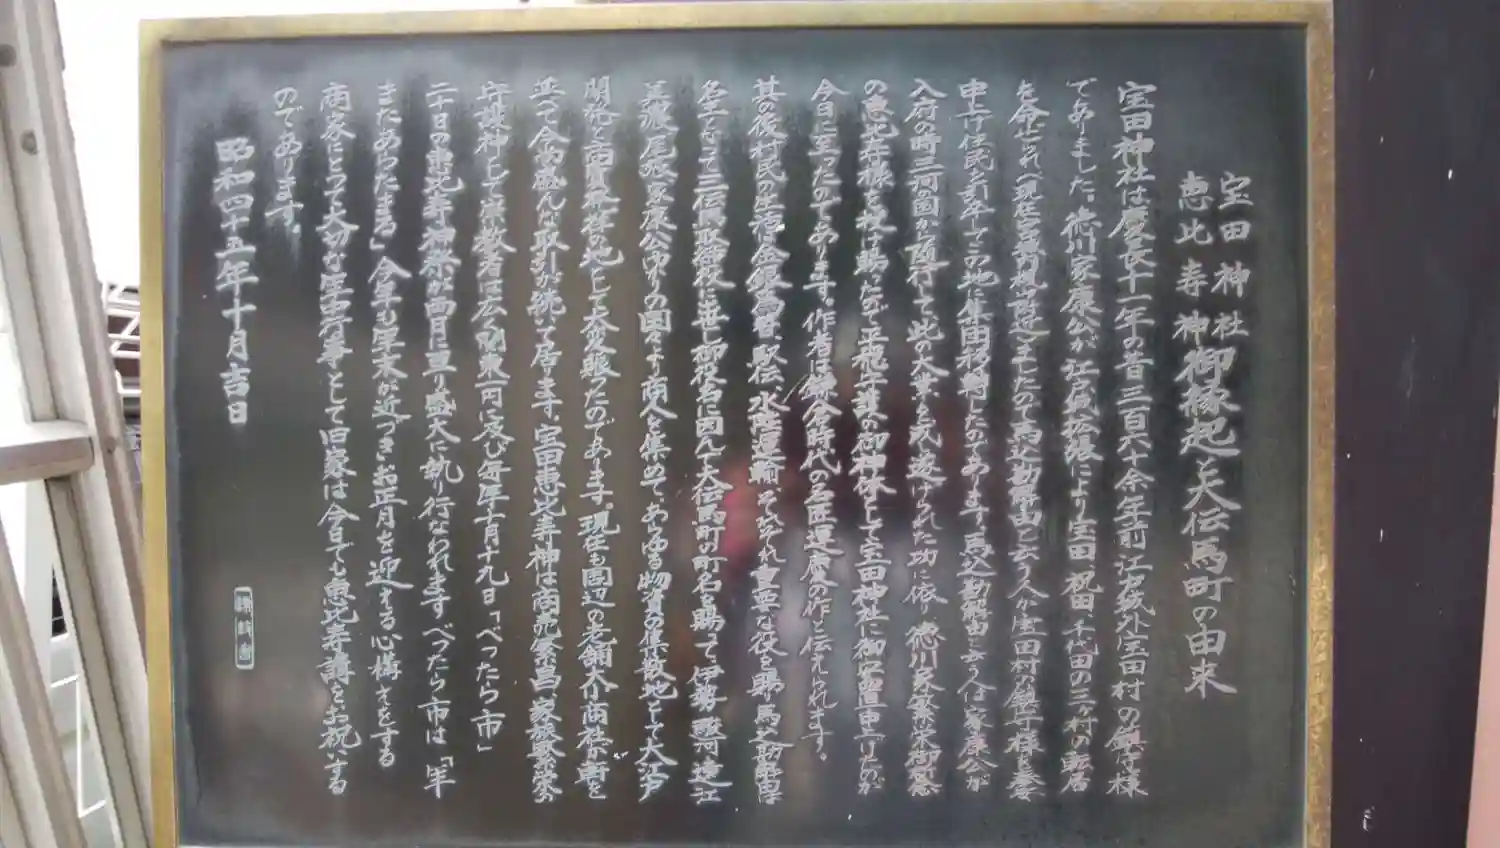 宝田神社
恵比寿神
御縁起と大伝馬町の由来
宝田神社は慶長十一年の昔三百六十余年前江戸城外宝田村の鎮守様
でありました。徳川家康公が江戸城拡張により宝田、祝田、千代田の三ヶ村の転居
を命ぜられ(現在宮城内楠公銅像附近)ましたので馬込勘解由と云う人が宝田村の鎮守様を奉安
申上げ住民を引率してこの地に集団移動したのであります馬込勘解由と云う人は家康公が
入府の時三河の国から随行して此の大業を成し遂げられた功に依り徳川家繁栄御祈念
の恵比寿様を授け賜ったので平穏守護の御神体として宝田神社に御安置申上げたのが
今日に至ったのであります。作者は鎌倉時代の名匠運慶の作と伝えられます。
其の後村民の生活は金銀為替、駅伝、水陸運輸、それぞれ重要な役を賜り馬込勘解由は
名主となって三伝馬取締役に出世し御役名に因んで大伝馬町の町名を賜って、伊勢、駿河、遠江
美濃、尾張、家康公ゆかりの国々より商人を集めて、あらゆる物資の集散地として大江戸
開化と商賈発祥の地として大変賑ったのであります。現在も周辺の老舗大小商社が軒を
並べて今尚盛んな取引が続いて居ります、宝田恵比寿神は商売繁昌、家族繁栄の
守護神として崇敬者は広く関東一円に及び毎年十月十九日「べったら市」
二十日の恵比寿神祭が両日に亘り盛大に執り行なわれますべったら市は「年
またあらたまる」今年も年末が近づきお正月を迎する心構えをする
商家にとって大切な年中行事として旧家は今日でも恵比寿講をお祝いする
のであります。
昭和四十五年十月吉日